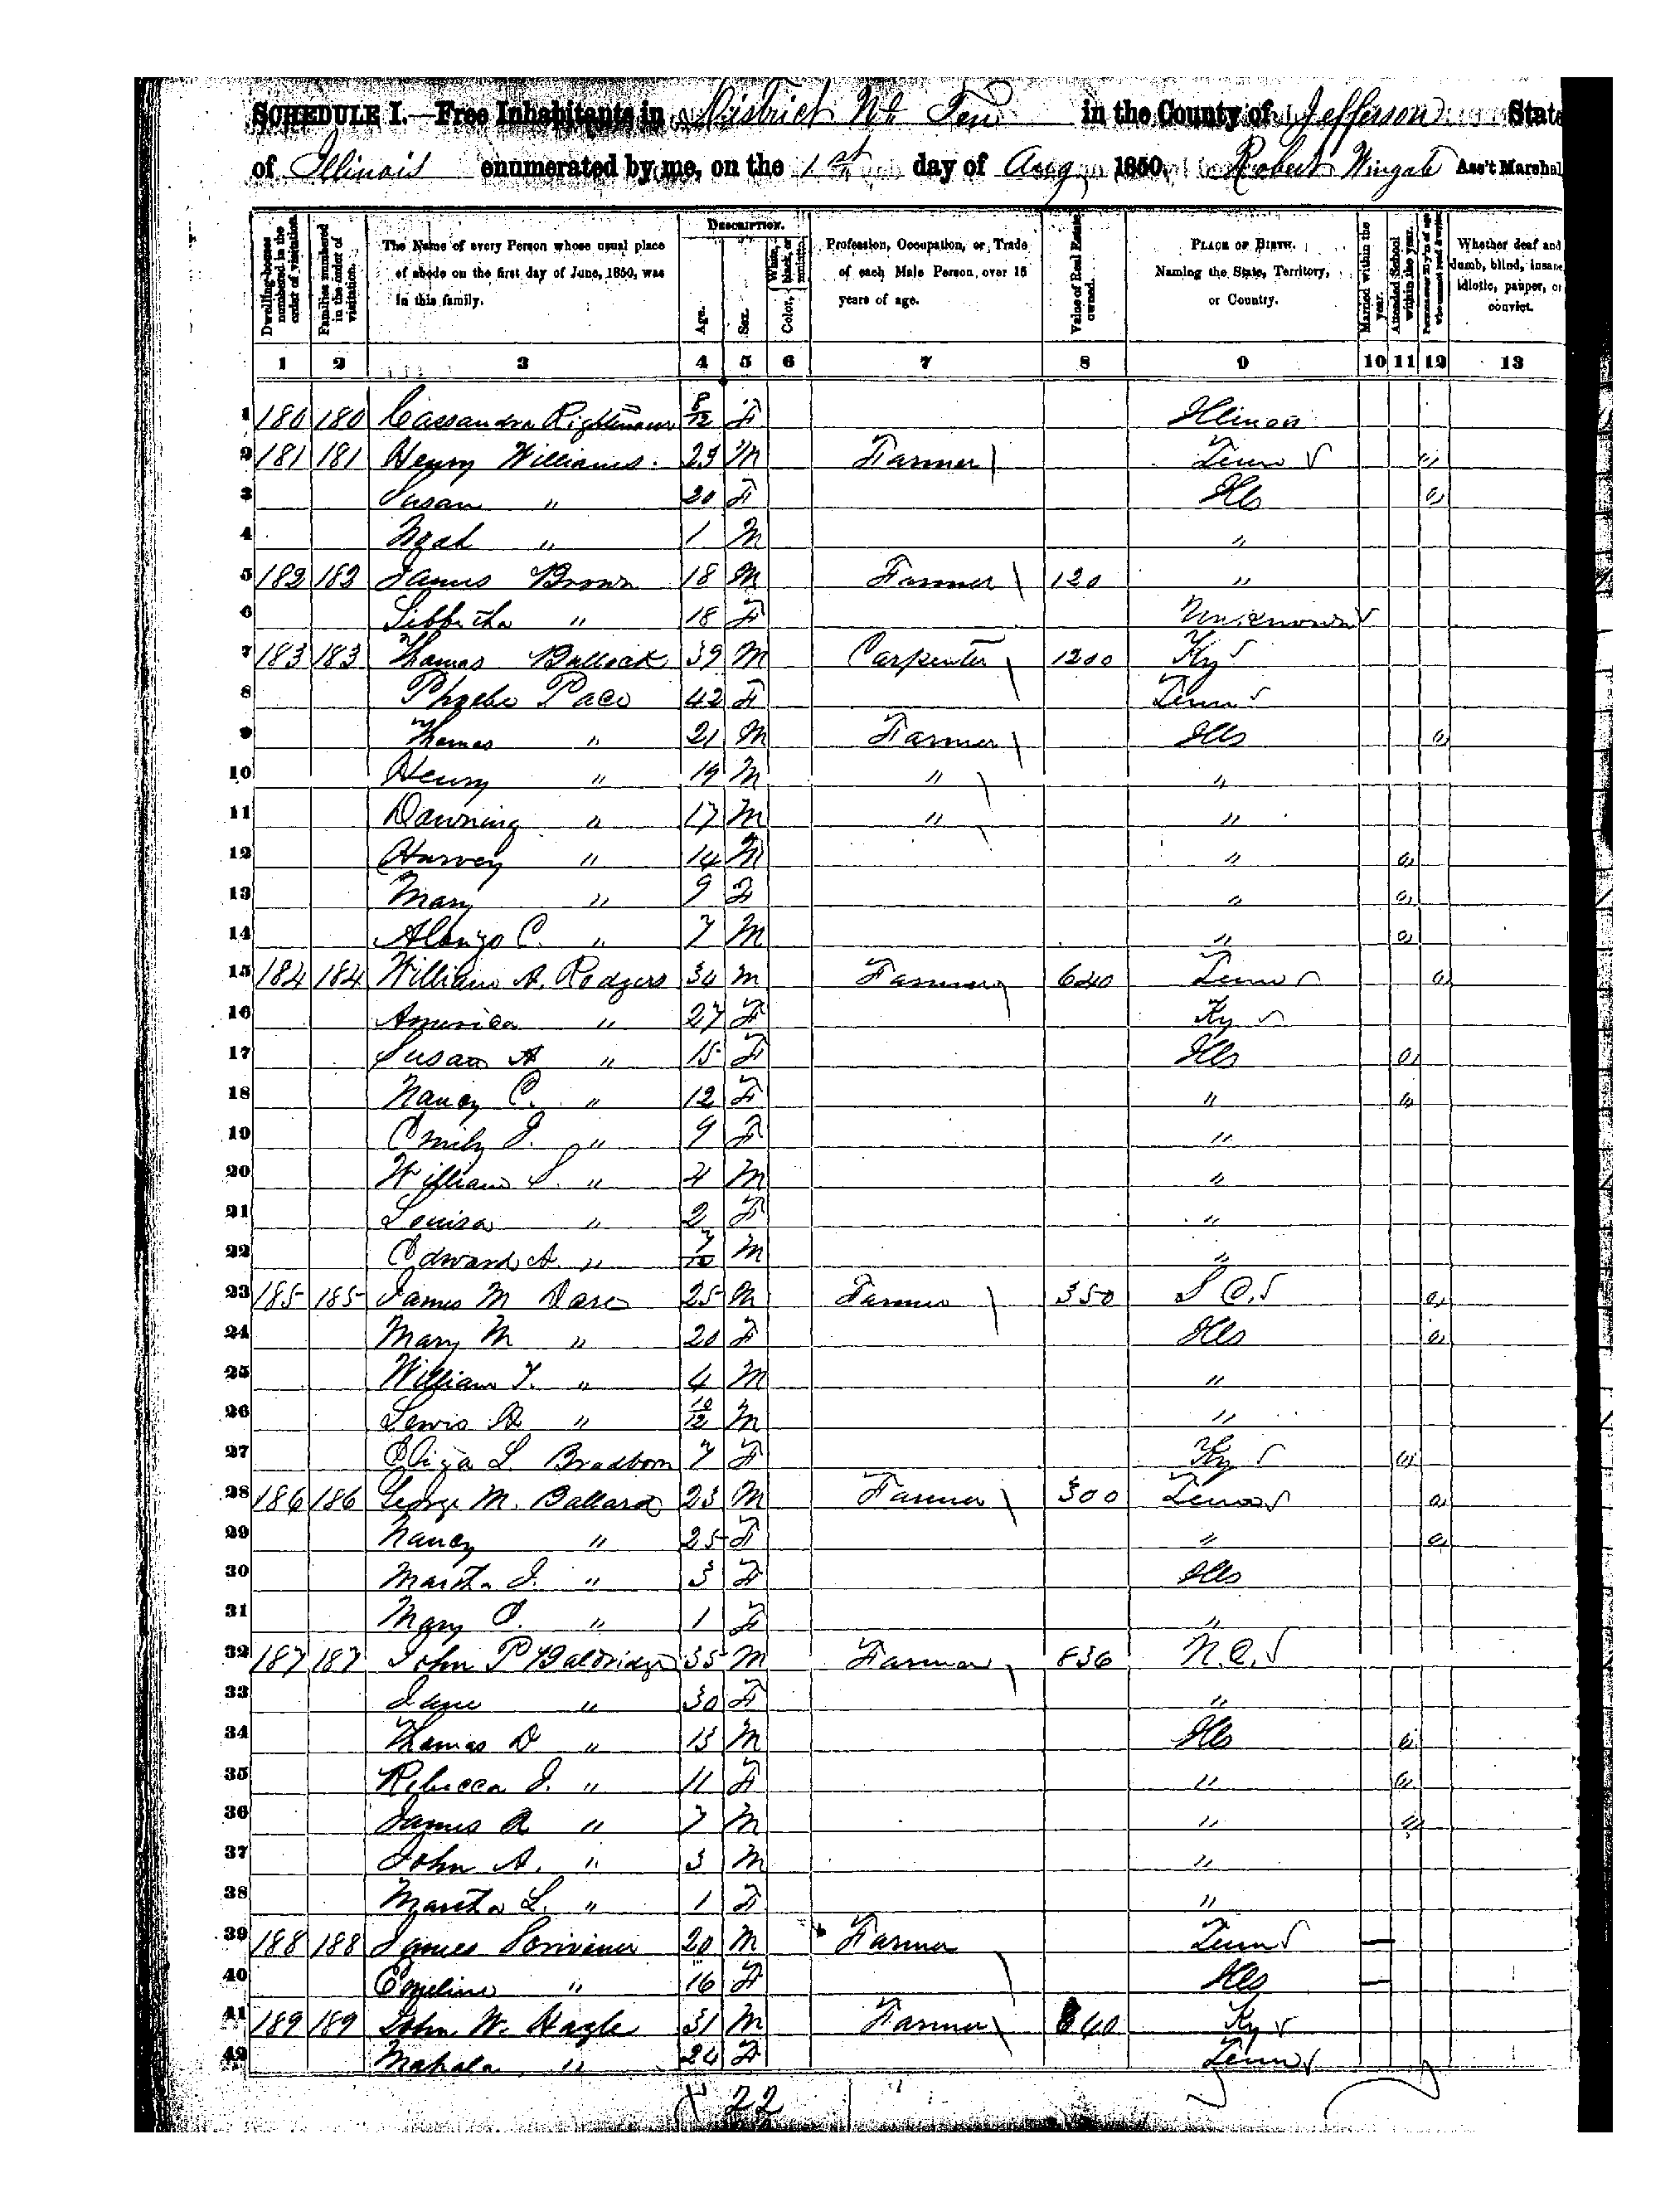 SCHEDULE I.—Free Inhabitants in District No Ten in the County of Jefferson State
of Illinois enumerated by me, on the 1st day of Aug 1850. Robert Wingate Ass't Marshal
Dwelling-houses numbered in the order of visitation.
Families numbered in the order of visitation.
The Name of every Person whose usual place of abode on the first day of June, 1850, was in this family.
DESCRIPTION.
Age.
Sex.
Color, White, black, or mulatto.
Profession, Occupation, or Trade of each Male Person, over 15 years of age.
Value of Real Estate owned.
PLACE OF BIRTH. Naming the State, Territory, or Country.
Married within the year.
Attended School within the year.
Persons over 20 y'rs of age who cannot read & write.
Whether deaf and dumb, blind, insane, idiotic, pauper, or convict.
1 2 3 4 5 6 7 8 9 10 11 12 13
1 180 180 Cassandra 8/12 F Illinois
2 181 181 Henry Williams 23 M Farmer Tenn
3 Susan " 20 F Ills
4 " 1 M "
5 182 182 James Brown 18 M Farmer 120 "
6 " 18 F Unknown
7 183 183 Thomas Bullock 39 M Carpenter 1200 Ky
8 Phoebe Pace 42 F Tenn
9 Thomas " 21 M Farmer Ills
10 Henry " 19 M " "
11 Downing " 17 M " "
12 Harvey " 14 M "
13 Mary " 9 F "
14 Alonzo C. " 7 M "
15 184 184 William A. Rodgers 34 M Farmer 640 Tenn
16 America " 27 F Ky
17 Susan A " 15 F Ills
18 Nancy C. " 12 F "
19 Emily J. " 9 F "
20 William S. " 4 M "
21 Louisa " 2 F "
22 Edward A. " M "
23 185 185 James M Dare 25 M Farmer 350 S C.
24 Mary M " 20 F Ills
25 William T. " 4 M "
26 Lewis " 10/12 M "
27 Eliza L. Bradborn 7 F Ky
28 186 186 George M. Ballard 23 M Farmer 300 Tenn
29 Nancy " 25 F "
30 Martha J. " 3 F Ills
31 Mary E. " 1 F "
32 187 187 John P Baldridge 35 M Farmer 836 N.C.
33 Jane " 30 F "
34 Thomas D " 13 M Ills
35 Rebecca J. " 11 F "
36 James R " 7 M "
37 John A. " 3 M "
38 Martha L. " 1 F "
39 188 188 James Scrivener 20 M Farmer Tenn
40 Emeline " 16 F Ills
41 189 189 John W. Hagle 31 M Farmer 840 Ky
42 Mahala " 24 F Tenn
22